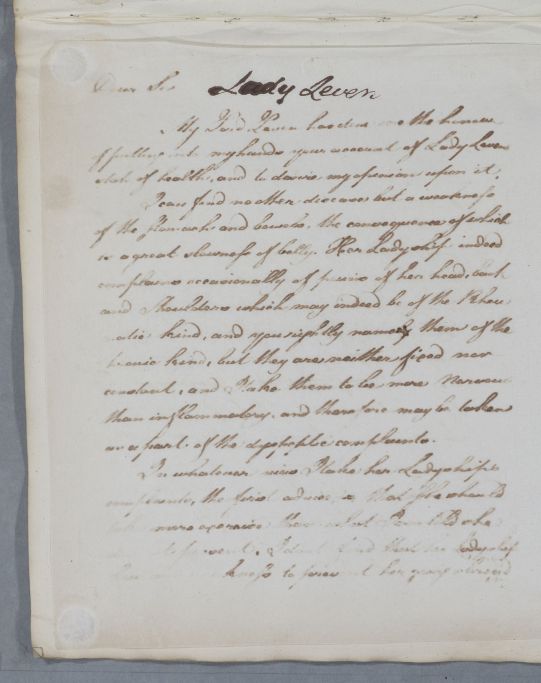 Dear Sir Lady Leven
My Lord Leven has done me the honour
of putting into my hands your account of Lady Leven
state of health, and to desire my opinion upon it.
I can find no other disease but a weakness
of the stomach and bowels, the consequence of which
is a great slowness of belly. Her Ladyship indeed
complains occasionally of pains of her head, back
and shoulders which may indeed be of the Rheu
matic kind, and you rightly name them of the
kind, but they are neither fixed nor
constant, and I take them to be more Nervous
than inflammatory, and therefore may be taken
as a part of the dyspeptic complaints.
In whatever view I take her Ladyships
complaints, the first advice is that she should
take more exercise than what I
at present. I don't find that her Ladyship
has to prevent her going abroad